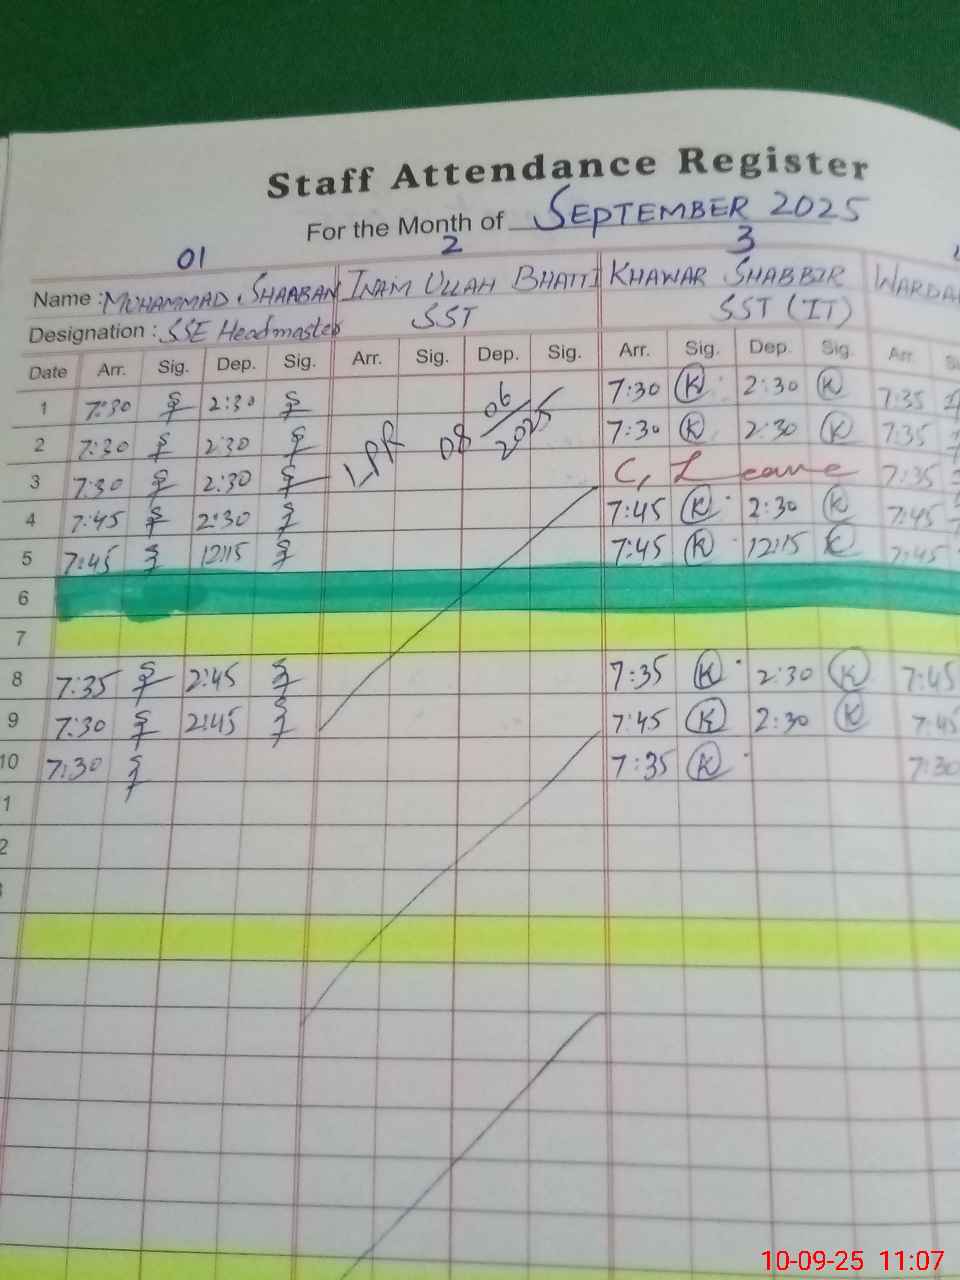 Staff Attendance Register
For the Month of SEPTEMBER 2025
01 2 3
Name : MUHAMMAD SHAABAN INAM ULLAH BHATTI KHAWAR SHABBIR WARDA
Designation : SSE Headmaster SST SST (IT)
Date Arr. Sig. Dep. Sig. Arr. Sig. Dep. Sig. Arr. Sig. Dep. Sig. Arr.
1 7:30 2:30 7:30 K 2:30 K 7:35
2 7:30 2:30 LPR 08/06/2025 7:30 K 2:30 K 7:35
3 7:30 2:30 C, Leave 7:35
4 7:45 2:30 7:45 K 2:30 K 7:45
5 7:45 12:15 7:45 K 12:15 K 7:45
6
7
8 7:35 2:45 7:35 K 2:30 K 7:45
9 7:30 2:45 7:45 K 2:30 K 7:45
10 7:30 7:35 K 7:30
1
2
10-09-25 11:07